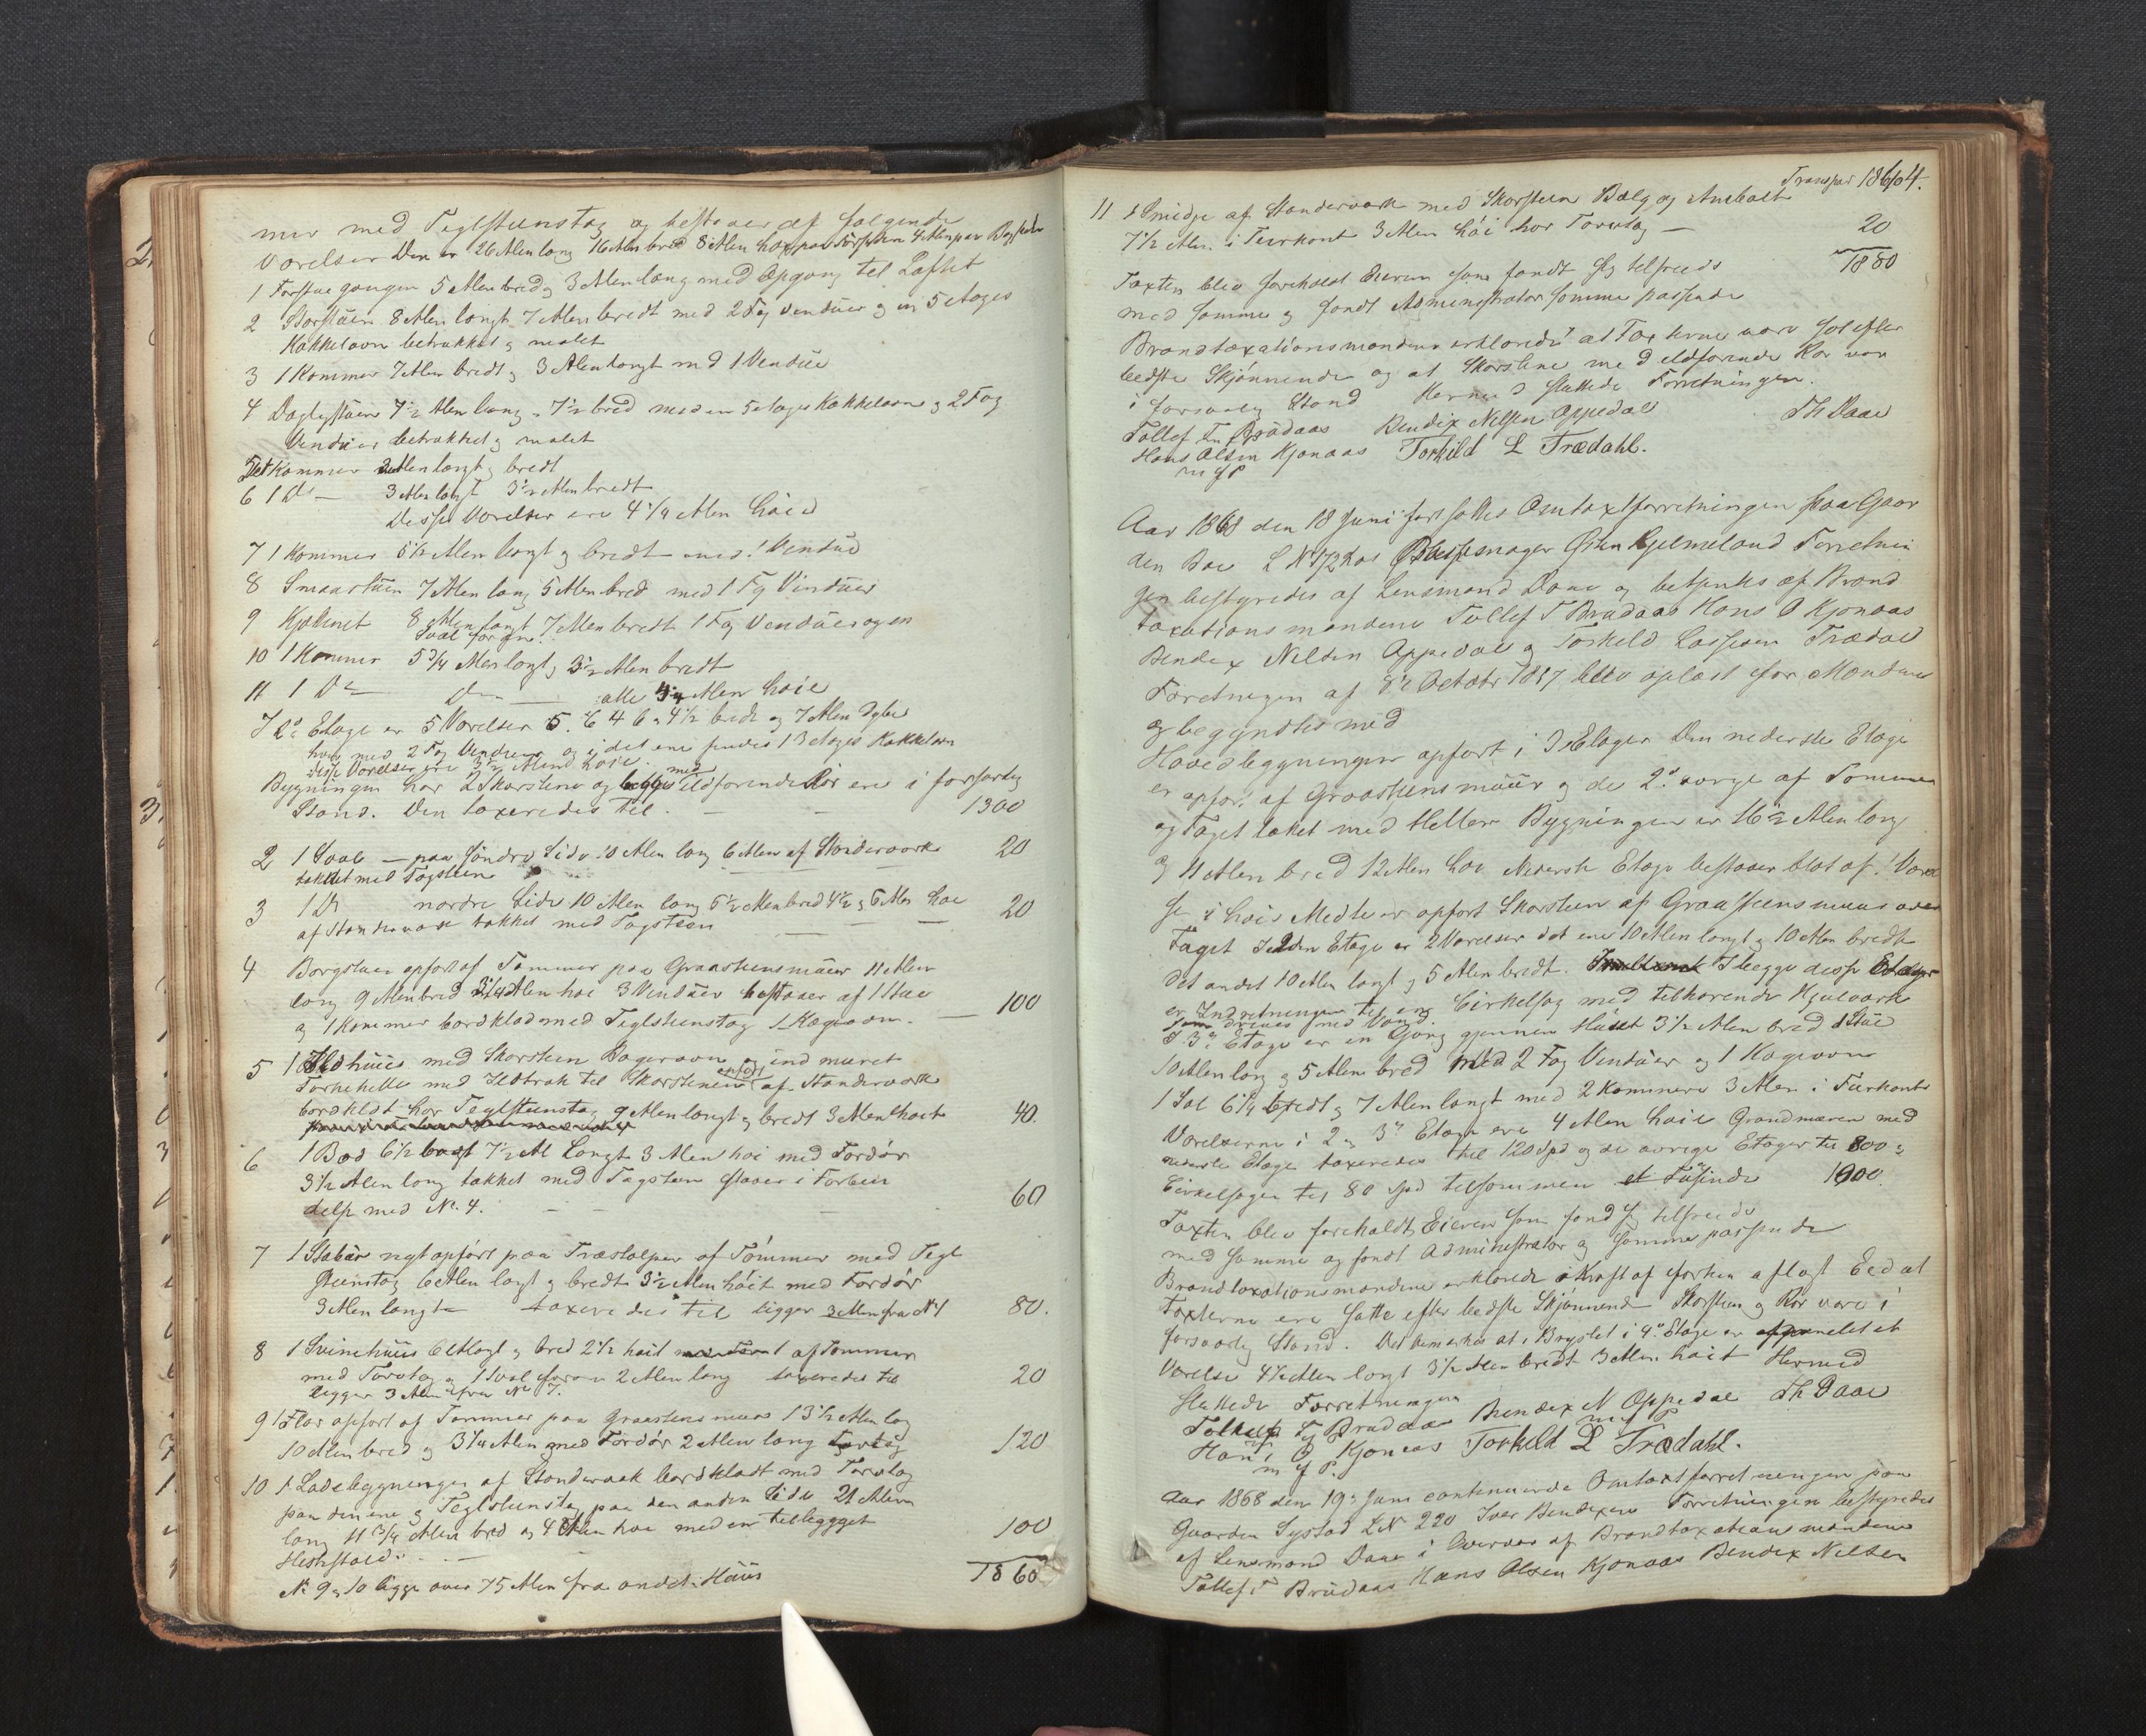 mer med Teglsteenstag og bestaaer af følgende
Værelser Den er 26 Alen lang 16 Alen bred 8 Alen høi paa Forsiden 4 Alen paa Bagsiden
1 Forstuegangen 5 Alen bred og 3 Alen lang med Opgang til Loftet
2 Storstuen 8 Alen langt 7 Alen bredt med 2 Fag Vinduer og en 5 Etages
Kakkelovn betrukket og malet
3 1 Kammer 7 Alen bredt og 3 Alen langt med 1 Vindue
4 Daglystuen 7 1/2 Alen lang 7 1/2 bred med en 5 etages Kakkelovn og 2 Fag
Vinduer betrukket og malet
Kammer Alen langt og bredt
6 1 do — 3 Alen langt 3 1/2 Alen bredt
Disse Værelser ere 4 1/4 Alen høie
7 1 Kammer 5 1/2 Alen langt og bredt med 1 Vindue
8 Smaastuen 7 Alen lang 5 Alen bred med 1 Fag Vinduer
9 Kjøkenet 8 Alen langt 7 Alen bredt 1 Fag Vinduer og en
Sval for
10 1 Kammer 5 3/4 Alen langt 3 1/2 Alen bredt
11 1 Do Do — alle Alen høie
I 2den Etage er 5 Værelser 5. 6 4 6 og 4 1/2 bred og 7 Alen dybe
hver med 2 Fag Vinduer og i det ene findes 1 3 etages Kakkelovn
disse Værelser ere 3 1/2 Alen høie. med
Bygningen har 2 Skorstene og begge ildførende Rør ere i forsvarlig
Stand. Den taxeredes til. — — 1300
2 1 Sval — paa søndre Side 10 Alen lang 6 Alen af Standerværk 20
tækket med Tagsteen
3 1 Do nordre Side 10 Alen lang 6 1/2 Alen bred 4 1/2 og 6 Alen høi
af Standerværk tækket med Tagsteen — — 20
4 Borgstuen opført af Tømmer paa Graasteensmuur 11 Alen
lang 9 Alen bred 3 1/4 Alen høi 3 Vinduer bestaaer af 1 Stue
og 1 Kammer bordklæd med Teglsteenstag 1 Kogeovn. — 100
5 1 Ildhuus med Skorsteen Bagerovn og ind muret
Tørkehelle med Ildtræk til Skorstenen opført af Standerværk
bordklædt har Teglsteenstag 9 Alen langt og bredt 3 Alen høit 40.
6 1 Bod 6 1/2 bredt 7 1/2 Al Langt 3 Alen høi med Fordør
3 1/2 Alen lang tækket med Tagsteen staaer i Forbin
delse med No. 4. — — — 60
7 1 Stabur nyt opført paa Træstolper af Tømmer med Tegl
steenstag 6 Alen langt og bredt 3 1/2 Alen høit med Fordør
3 Alen langt taxeredes til ligger 3 Alen fra No 1 80.
8 1 Svinehuus 6 Al langt og bred 2 1/2 høit af Tømmer
med Torvtag og 1 Sval foran 2 Alen lang taxeredes til 20
ligger 3 Alen fra No 7.
9 1 Flor opført af Tømmer paa Graasteensmuur 13 1/2 Alen lang
10 Alen bred og 3 1/4 Alen med Fordør 2 Alen lang Torvtag 120
10 1 Ladebygningen af Standerværk bordklædt med Torvtag
paa den ene og Teglsteenstag paa den anden Side 21 Alen
lang 11 3/4 Alen bred og 4 Alen høi med en tilbygget
Hestestald. — 100
No 9 og 10 ligge over 75 Alen fra andet Huus 1860
Transport 1860 4.
11 1 Smidje af Standerværk med Skorsteen Bælg og Ambolt
7 1/2 Alen i Fiirkant 3 Alen høi har Torvtag — 20
1880
Taxten blev foreholdt Eieren som fandt sig tilfreds
med samme og fandt Administrator samme passende
Brandtaxationsmændene erklærede at Taxterne vare sat efter
bedste Skjønnende og at Skorstene med ildførende Rør var
i forsvarlig Stand Hermed sluttede Forretningen.
Tollef Tn Brudaas Bendix Nilsen Oppedal Th Daae
Hans Olsen Kjonaas Torkild L Trædahl.
m f P
Aar 1868 den 18 Juni fortsattes Omtaxtforretningen paa Gaar
den Boe L No Hjelmeland Forretnin
gen bestyredes af Lensmand Daae og betjentes af Brand
taxationsmændene Tollef T Brudaas Hans O Kjonaas
Bendix Nilsen Oppedal og Torkild Lassesen Trædal
Forretningen af 8de Octobr 1857 blev oplæst for Mændene
og begyndtes med
Hovedbygningen opført i 3 Etager Den nederste Etage
er opført af Graasteensmuur og de 2de øvrige af Tømmer
og Taget lakt med Heller Bygningen er 16 1/2 Alen lang
og 11 Alen bred 12 Alen høi Nederste Etage bestaaer blot af 1 Værel
se i hvis Midte er opført Skorsteen af Graasteensmuur over
Taget I 2den Etage er 2 Værelser det ene 10 Alen langt og 10 Alen bredt
det andet 10 Alen langt og 5 Alen bredt. I begge disse Etager
er Indretninger til en Cirkelsag med tilhørende Hjulværk
som drives med Vand.
I 3de Etage er en Gang gjennem Huset 3 1/2 Alen bred 1 Stue
10 Alen lang og 5 Alen bred med 2 Fag Vinduer og 1 Kogeovn
1 Sal 6 1/4 bredt og 7 Alen langt med 2 Kammere 3 Alen i Fiirkant
Værelserne i 2 og 3de Etage ere 4 Alen høie Grundmuren med
nederste Etage taxeredes til 120 Spd og de øvrige Etager til 800
Cirkelsagen til 80 Spd tilsammen et Tusinde 1000.
Taxten blev foreholdt Eieren som fand sig tilfreds
med samme og fandt Administrator og samme passende
Brandtaxationsmændene erklærede i Kraft af forhen aflagt Eed at
Taxterne ere satte efter bedste Skjønnende Skorsteen og Rør vare i
forsvarlig Stand. Det bemærkes at i Brystet i 4de Etage er afpanelet et
Værelse 4 1/2 Alen langt 3 1/2 Alen bredt 3 Alen høit Hermed
sluttede Forretningen
Tollef T Brudaas Bendix N Oppedal Th Daae
m f P
Hans O Kjonaas Torkild L Trædahl.
m f P.
Aar 1868 den 19de Juni continuerede Omtaxtforretningen paa
Gaarden Systad L No 220 Iver Bendixen Forretningen bestyredes
af Lensmand Daae i Overvær af Brandtaxationsmændene
Tollef T Brudaas Hans Olsen Kjonaas Bendix Nilsen